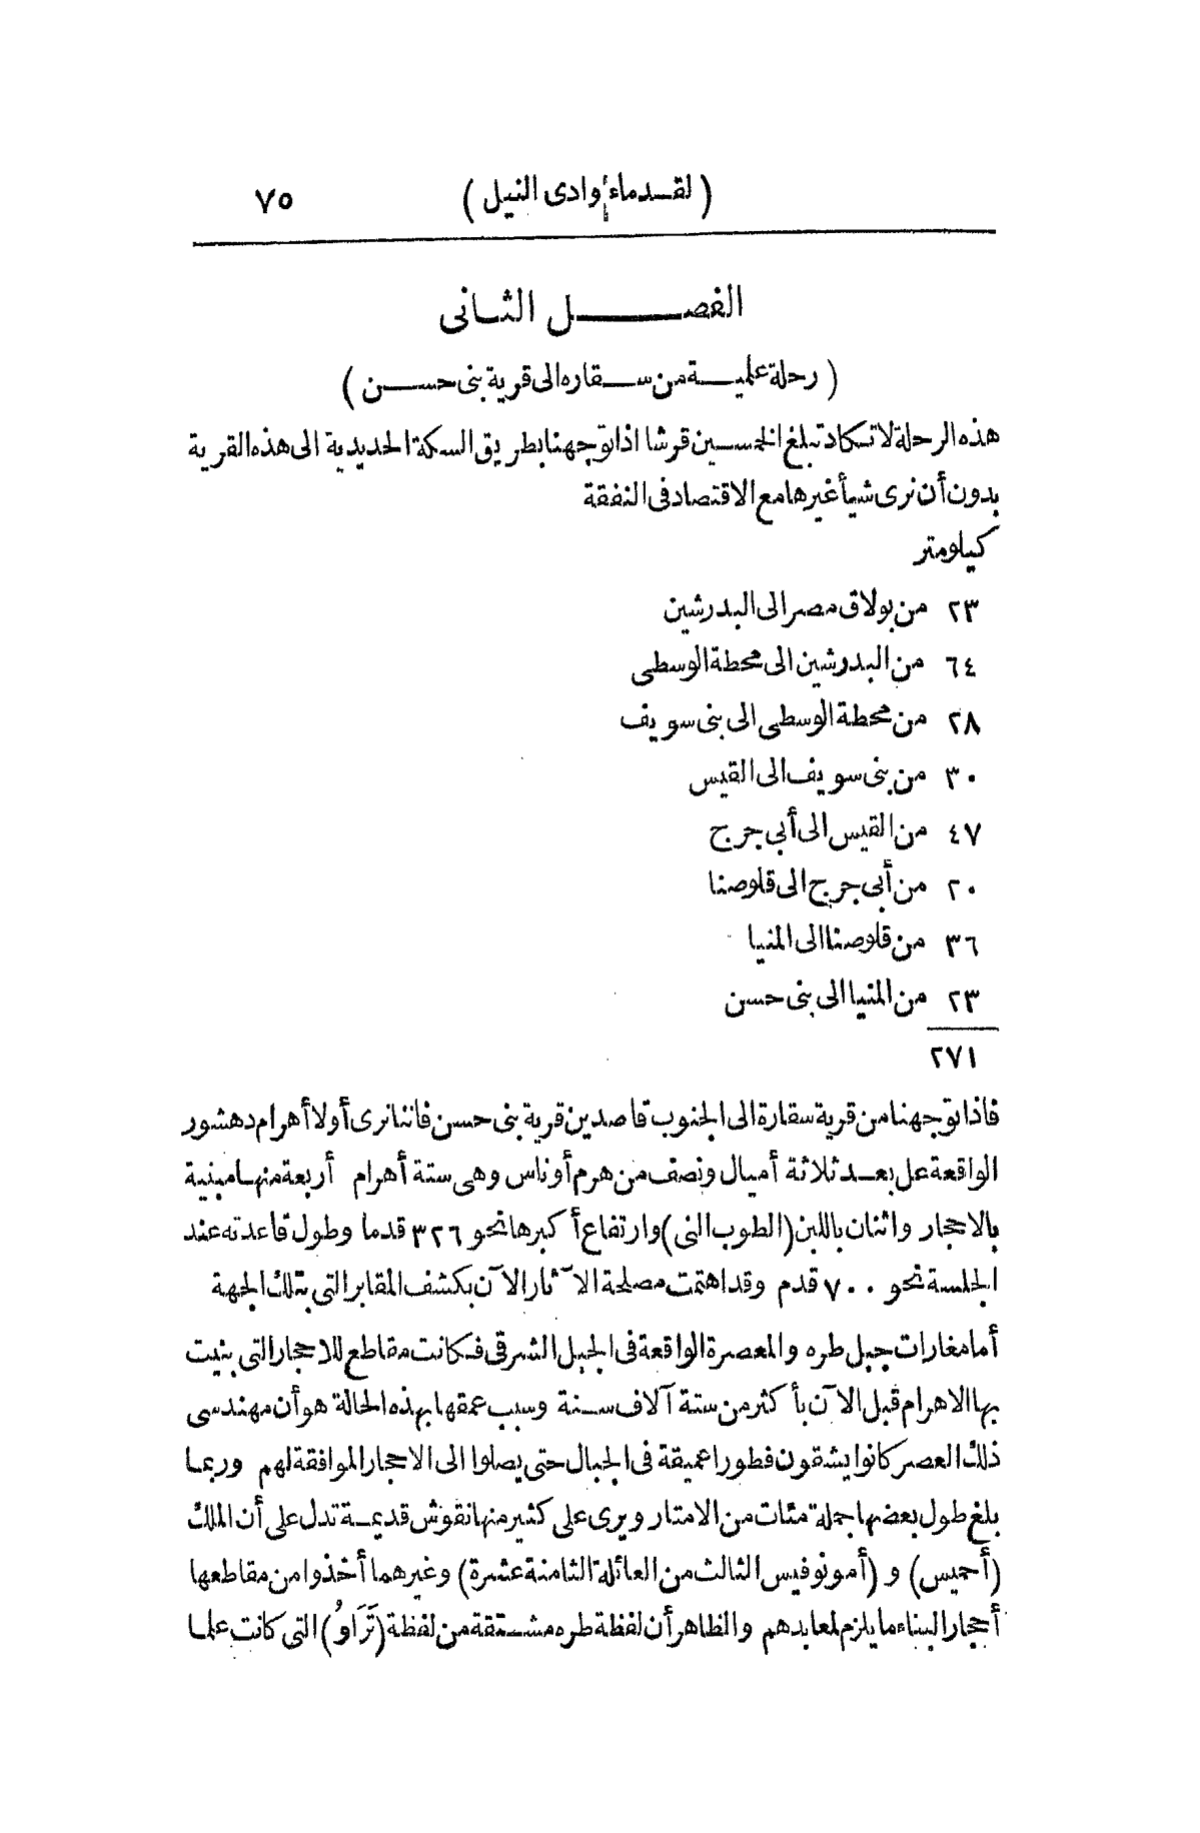 ٧٥ (لقدماء وادى النيل)
الفصل الثانى
(رحلة علمية من سقاره الى قرية بنى حسن)
هذه الرحلة لا تكاد تبلغ الخمسين قرشا اذا توجهنا بطريق السكة الحديدية الى هذه القرية
بدون أن نرى شيأ غيرها مع الاقتصاد فى النفقة
كيلومتر
٢٣ من بولاق مصر الى البدرشين
٦٤ من البدرشين الى محطة الوسطى
٢٨ من محطة الوسطى الى بنى سويف
٣٠ من بنى سويف الى القيس
٤٧ من القيس الى أبى جرج
٢٠ من أبى جرج الى قلوصنا
٣٦ من قلوصنا الى المنيا
٢٣ من المنيا الى بنى حسن
٢٧١
فاذا توجهنا من قرية سقارة الى الجنوب قاصدين قرية بنى حسن فاننا نرى أولا أهرام دهشور
الواقعة عل بعد ثلاثة أميال ونصف من هرم أوناس وهى ستة أهرام أربعة منها مبنية
بالاحجار واثنان باللبن (الطوب النى) وارتفاع أكبرها نحو ٣٢٦ قدما وطول قاعدته عند
الجلسة نحو ٧٠٠ قدم وقد اهتمت مصلحة الآثار الآن بكشف المقابر التى بتلك الجهة
أما مغارات جبل طره والمعصرة الواقعة فى الجبل الشرقى فكانت مقاطع للاحجار التى بنيت
بها الاهرام قبل الآن بأكثر من ستة آلاف سنة وسبب عمقها بهذه الحالة هو أن مهندسى
ذلك العصر كانوا يشقون فطورا عميقة فى الجبال حتى يصلوا الى الاحجار الموافقة لهم وربما
بلغ طول بعضها جملة مئات من الامتار ويرى على كثير منها نقوش قديمة تدل على أن الملك
(أحميس) و (أمونوفيس الثالث من العائلة الثامنة عشرة) وغيرهما أخذوا من مقاطعها
أحجار البناء ما يلزم لمعابدهم والظاهر أن لفظة طره مشتقة من لفظة (تَرَاوُ) التى كانت علما